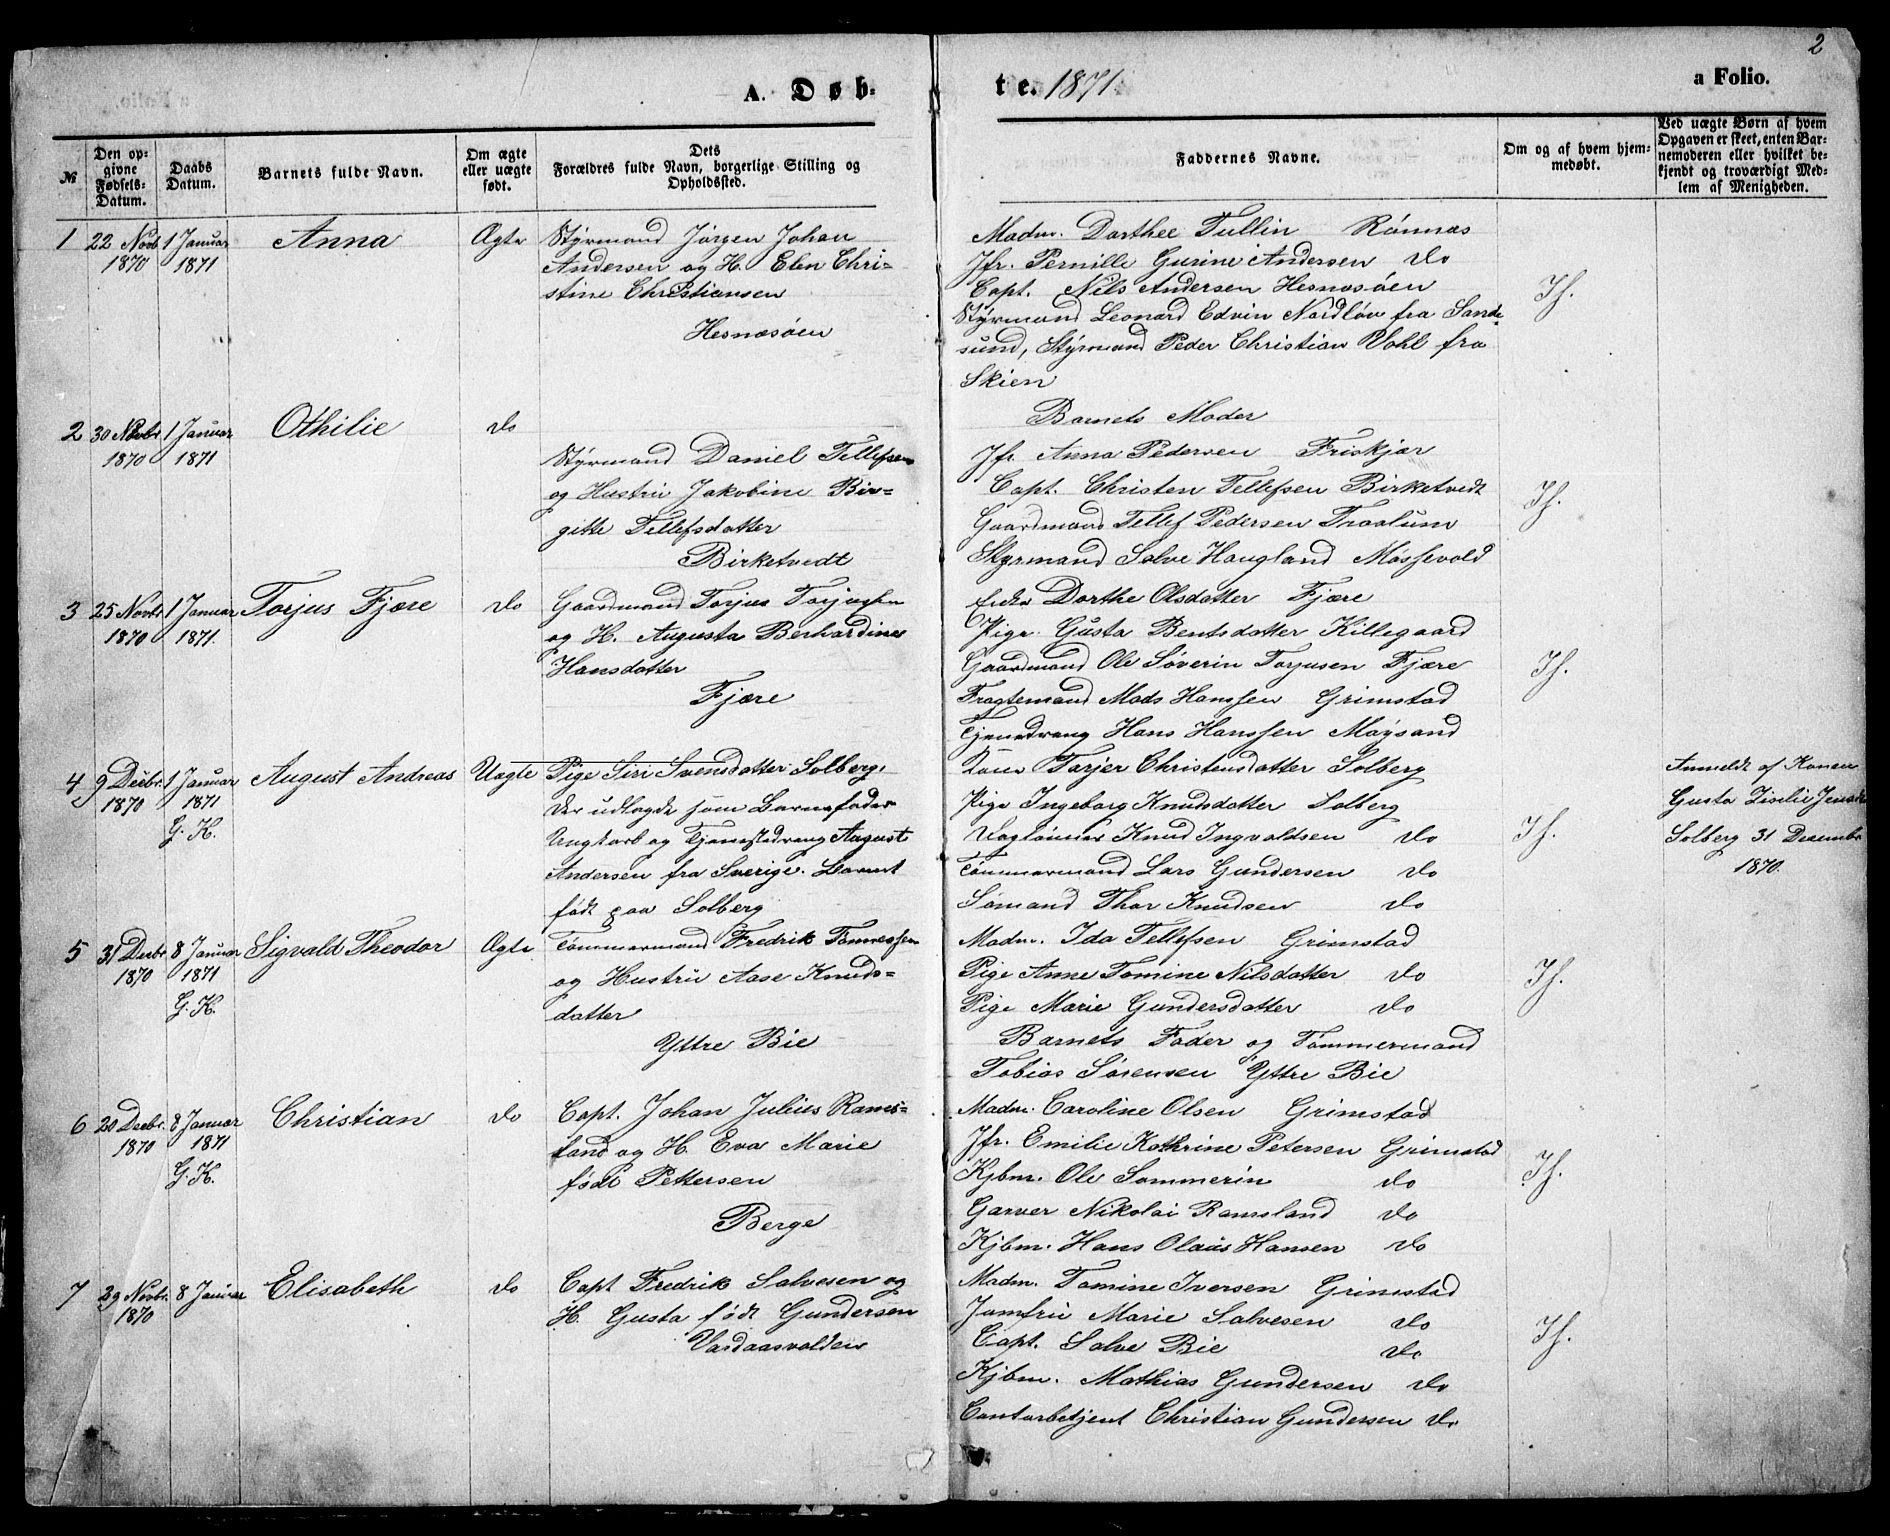 2
A. Døb-
te. 1871.
a Folio.
№
Den op-
givne
Fødsels-
Datum.
Daabs
Datum.
Barnets fulde Navn.
Om ægte
eller uægte
født.
Dets
Forældres fulde Navn, borgerlige Stilling og
Opholdssted.
Faddernes Navne.
Om og af hvem hjem-
medøbt.
Ved uægte Børn af hvem
Opgaven er skeet, enten Bar-
nemoderen eller hvilket be-
kjendt og troværdigt Med-
lem af Menigheden.
1
22 Novb
1870
1 Januar
1871
Anna
Ægte
Styrmand Jørgen Johan
Andersen og H. Elen Chri-
stine Christiansen
Hesnæsøen
Madm. Dorthee Tullin Rønnæs
Jfr. Pernille Gurine Andersen do
Capt. Nils Andersen Hesnæsøen
Styrmand Leonard Edvin Nordløv fra Sande-
sund, Styrmand Peder Christian Vohl fra
Skien
J f.
2
30 Novbr
1870
1 Januar
1871
Othilie
do
Styrmand Daniel Tellefsen
og Hustru Jakobine Bir-
gitte Tellefsdatter
Birketvedt
Barnets Moder
Jfr. Anna Pedersen Friskjær
Capt. Christen Tellefsen Birketvedt
Gaardmand Tellef Pedersen Traalum
Styrmand Salve Haugland Møssevold
J f.
3
25 Novbr.
1870
1 Januar
1871.
Torjus Fjære
do
Gaardmand Torjus Torjusen
og H. Augusta Berhardine
Hansdatter
Fjære
Enke Dorthe Olsdatter Fjære
Pige Gusta Bentsdatter Killegaard
Gaardmand Ole Søverin Torjusen Fjære
Fragtemand Mads Hanssen Grimstad
Tjenedreng Hans Hanssen Møysand
J f.
4
9 Decbr.
1870
1 Januar
1871
G. K.
August Andreas
Uægte
Pige Siri Svensdatter Solberg,
der udlagde som Barnefader
Ungkarl og Tjenestedreng August
Andersen fra Sverige. Barnet
født paa Solberg
Kone Torjer Christensdatter Solberg
Pige Ingeborg Knudsdatter Solberg
Daglønner Knud Ingvaldsen do
Tømmermand Lars Gundersen do
Sømand Thor Knudsen do
J f.
Anmeldt af Konen
Gusta Zisilie Jensd.
Solberg 31 Decembr
1870.
5
31 Decbr
1870
8 Januar
1871
G. K.
Sigvald Theodor
Ægte
Tømmermand Fredrik Tønnessen
og Hustru Aase Knuds-
datter
Yttre Bie
Madm. Ida Tellefsen Grimstad
Pige Anne Tomine Nilsdatter do
Pige Marie Gundersdatter do
Barnets Fader og Tømmermand
Tobias Sørensen Yttre Bie
J f.
6
20 Decbr.
1870
8 Januar
1871
G. K.
Christian
do
Capt. Johan Julius Rams-
land og H. Eva Marie
født Pettersen
Berge
Madm. Caroline Olsen Grimstad
Jfr. Emilie Kathrine Petersen Grimstad
Kjbm. Ole Sommerin do
Garver Nikolai Ramsland do
Kjbm. Hans Olaus Hansen do
J f.
7
29 Novbr.
1870
8 Januar
Elisabeth
do
Capt Fredrik Salvesen og
H. Gusta født Gundersen
Vardaasvolden
Madm. Tomine Iversen Grimstad
Jomfru Marie Salvesen do
Capt. Salve Bie do
Kjbm. Mathias Gundersen do
Contorbetjent Christian Gundersen do
J f.